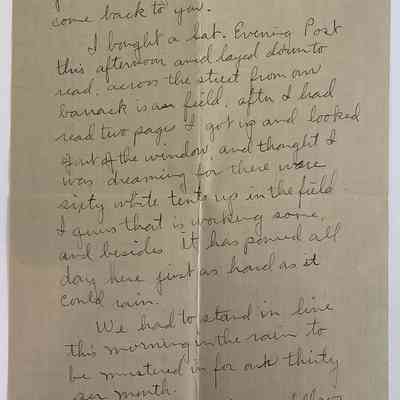 come back to you.
I bought a Sat. Evening Post
this afternoon and layed down to
read, across the street from our
barrack is an field, after I had
read two pages I got up and looked
out of the window and thought I
was dreaming for there were
sixty white tents up in the field.
I guess that is working some,
and besides it has poured all
day here just as hard as it
could rain.
We had to stand in line
this morning in the rain to
be mustered in for our thirty
per month.